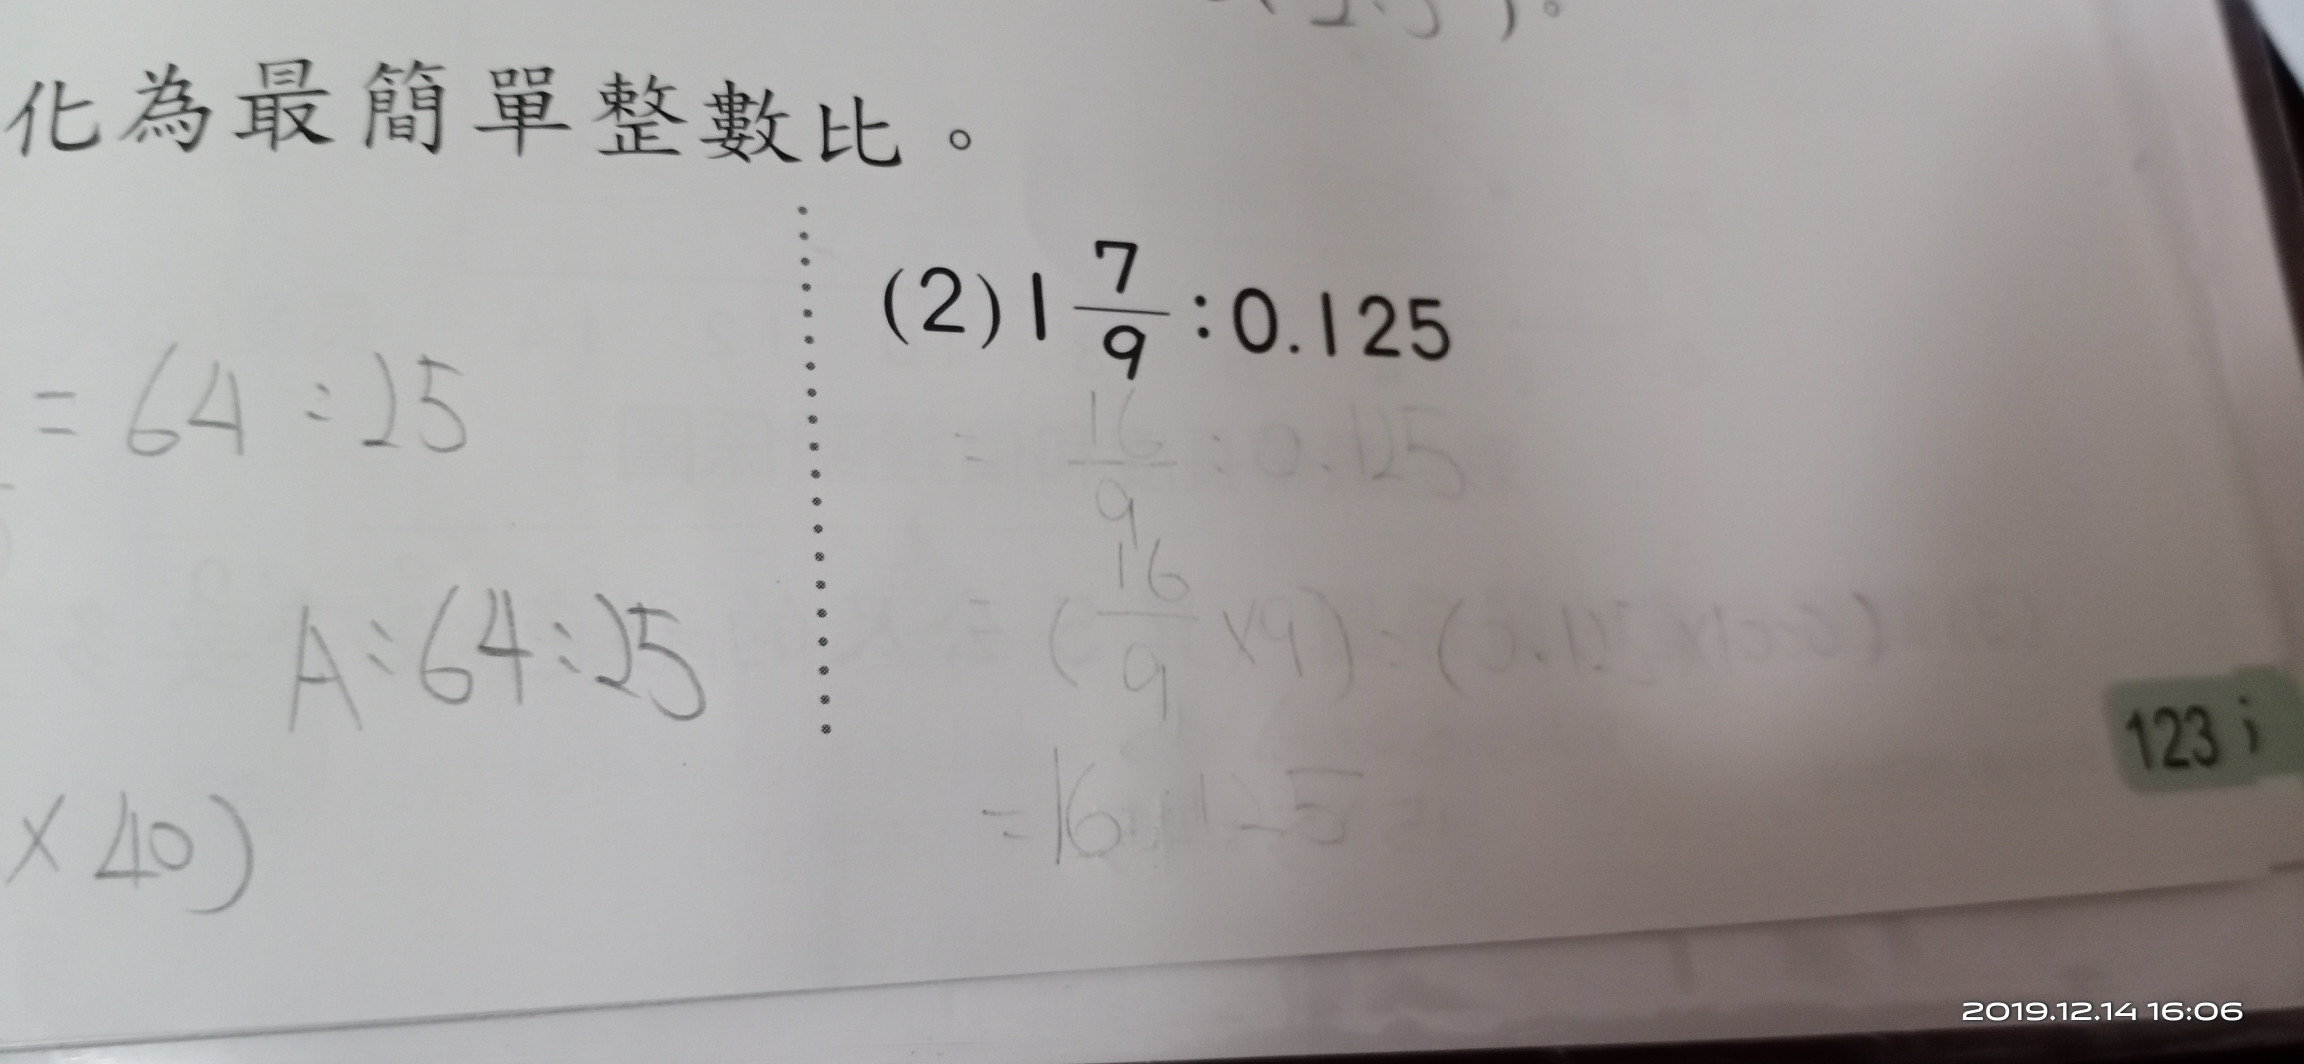 化為最簡單整數比。
= 64 : 25
A : 64 : 25
× 40)
(2) 1 7/9 : 0.125
= 16/9 : 0.125
= (16/9 ×9) : (0.125 ×1000)
= 16 : 125
123 i
2019.12.14 16:06